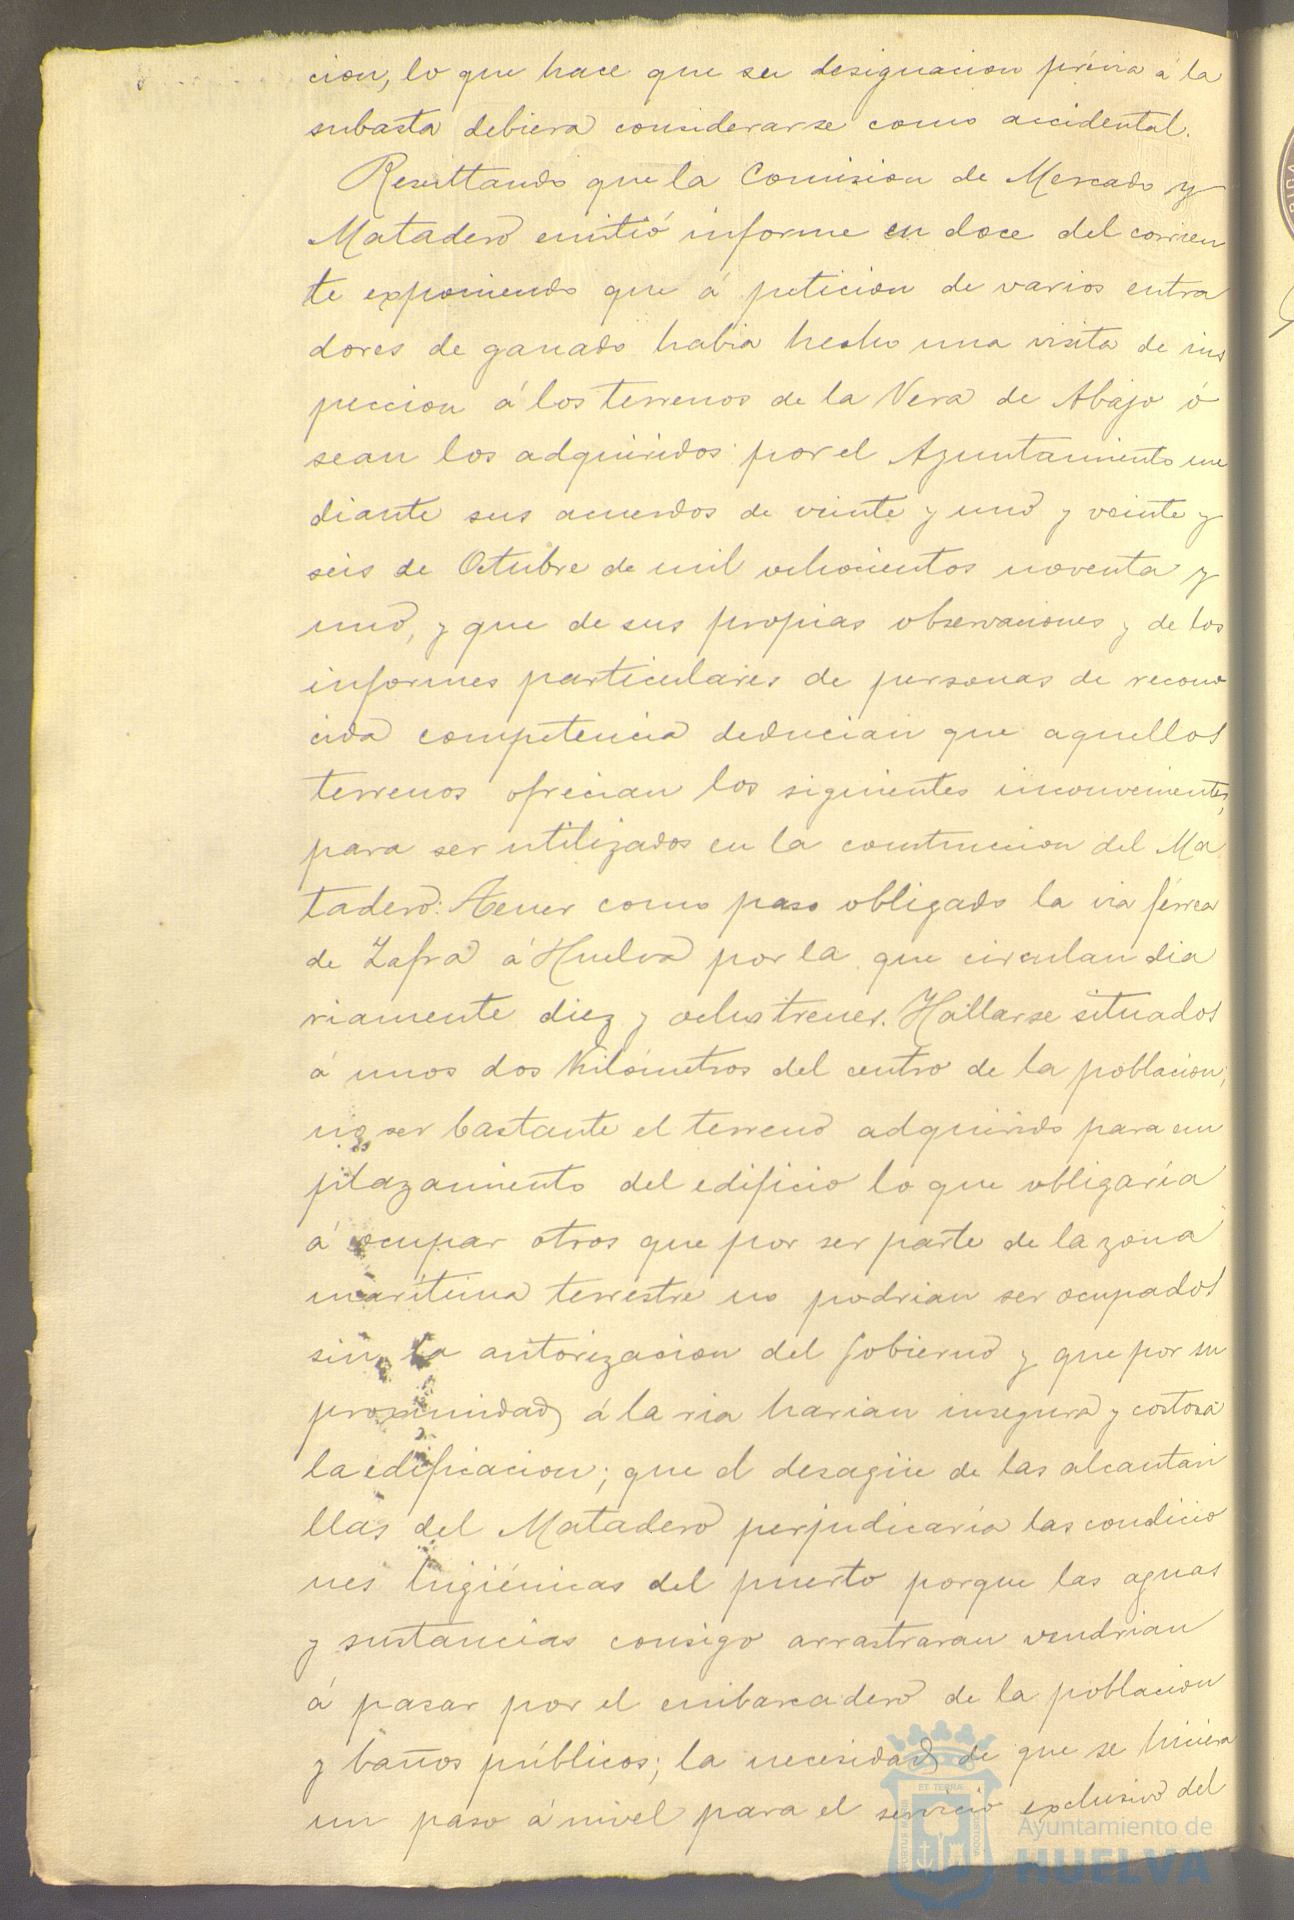 cion, lo que hace que su designacion prévia á la
subasta debiera considerarse como accidental.
Resultando que la Comision de Mercado y
Matadero emitió informe en doce del corrien
te exponiendo que á peticion de varios entra
dores de ganado habia hecho una visita de ins
peccion á los terrenos de la Vera de Abajo ó
sean los adquiridos por el Ayuntamiento me
diante sus acuerdos de veinte y uno y veinte y
seis de Octubre de mil ochocientos noventa y
uno, y que de sus propias observaciones y de los
informes particulares de personas de recono
cida competencia deducian que aquellos
terrenos ofrecian los siguientes inconvenientes,
para ser utilizados en la construccion del Ma
tadero: Tener como paso obligado la via férrea
de Zafra á Huelva por la que circulan dia
riamente diez y ocho trenes. Hallarse situados
á unos dos Kilómetros del centro de la poblacion;
no ser bastante el terreno adquirido para em
plazamiento del edificio lo que obligaría
á ocupar otros que por ser parte de la zona
marítima terrestre no podrian ser ocupados
sin la autorizacion del Gobierno y que por su
proximidad á la ria harian insegura y costosa
la edificacion; que el desagüe de las alcantari
llas del Matadero perjudicaría las condicio
nes higiénicas del puerto porque las aguas
y sustancias consigo arrastraran vendrian
á pasar por el embarcadero de la poblacion
y baños públicos; la necesidad de que se hiciera
un paso á nivel para el servicio exclusivo del
ET TERRÆ
PORTUS MARIS
CUSTODIA
Ayuntamiento de
HUELVA